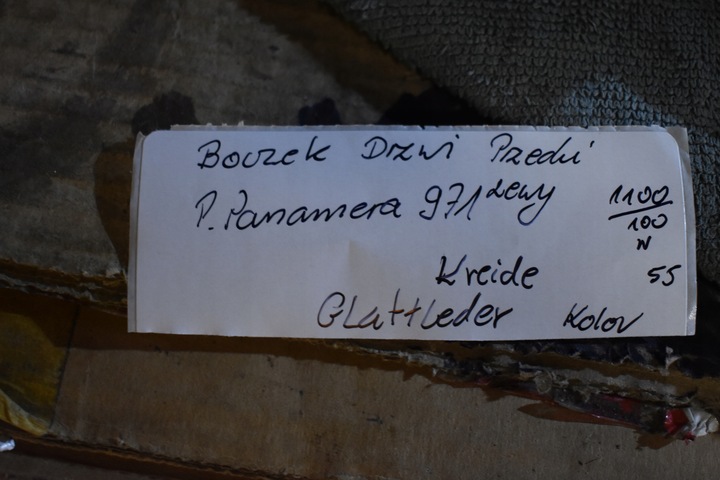 Boczek Drzwi Przedni
P. Panamera 971 Lewy
1100
100
W
Kreide 55
Glattleder Kolor